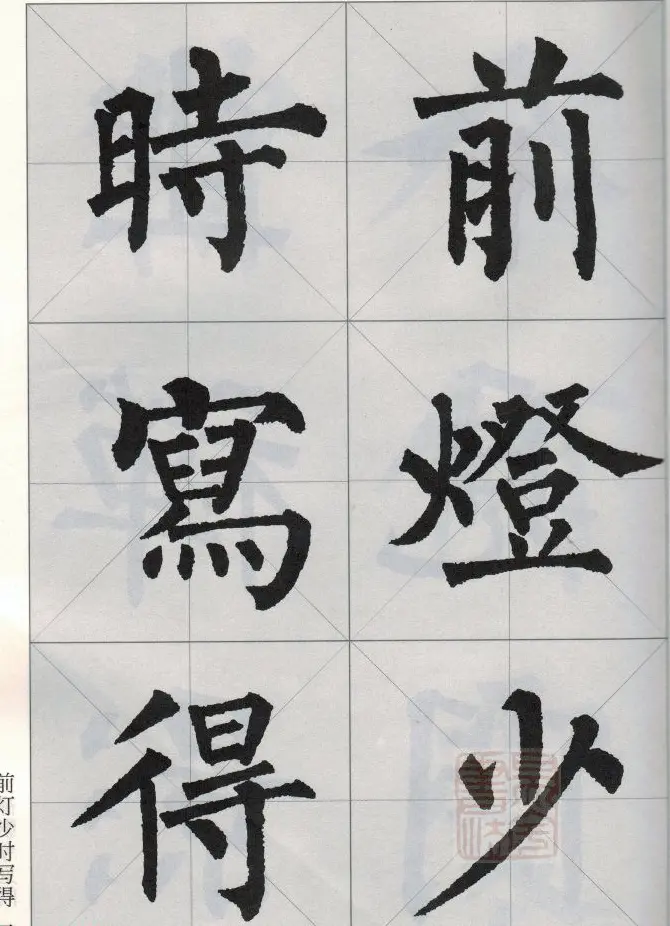 前燈少
時寫得
前灯少时写得